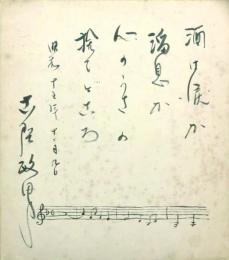 酒は涙か
溜息か
心のうさの
捨てどころ
昭和十五年十一月九日
古賀政男